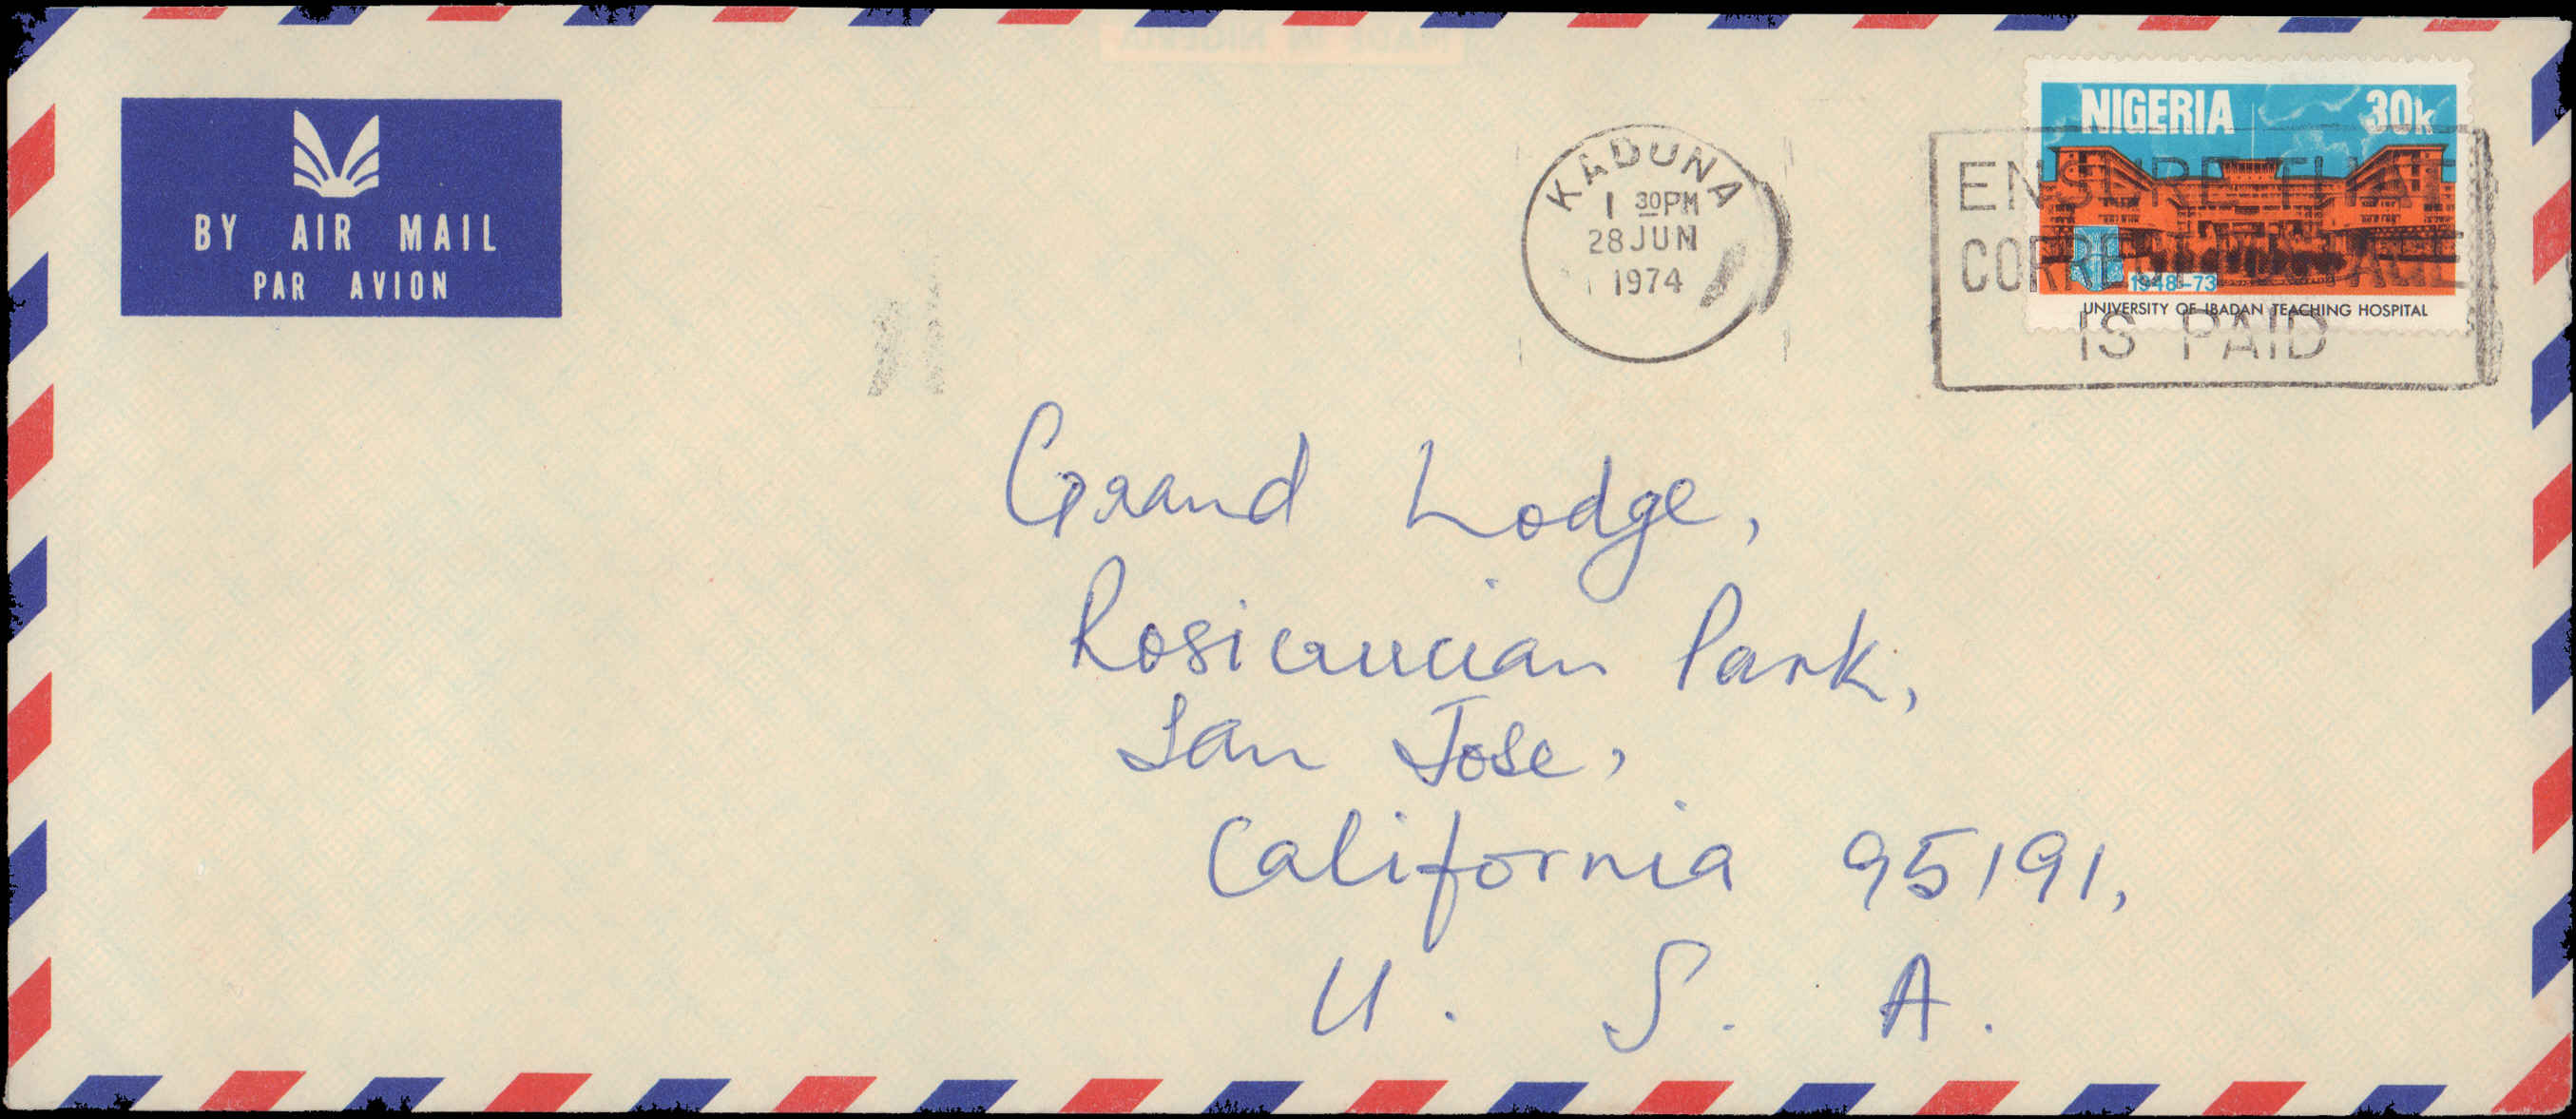 MADE IN NIGERIA
BY AIR MAIL
PAR AVION
KADUNA
1 30PM
28 JUN
1974
NIGERIA 30k
1948-73
UNIVERSITY OF IBADAN TEACHING HOSPITAL
ENSURE THAT
CORRECT POSTAGE
IS PAID
Grand Lodge,
Rosicrucian Park,
San Jose,
California 95191,
U. S. A.